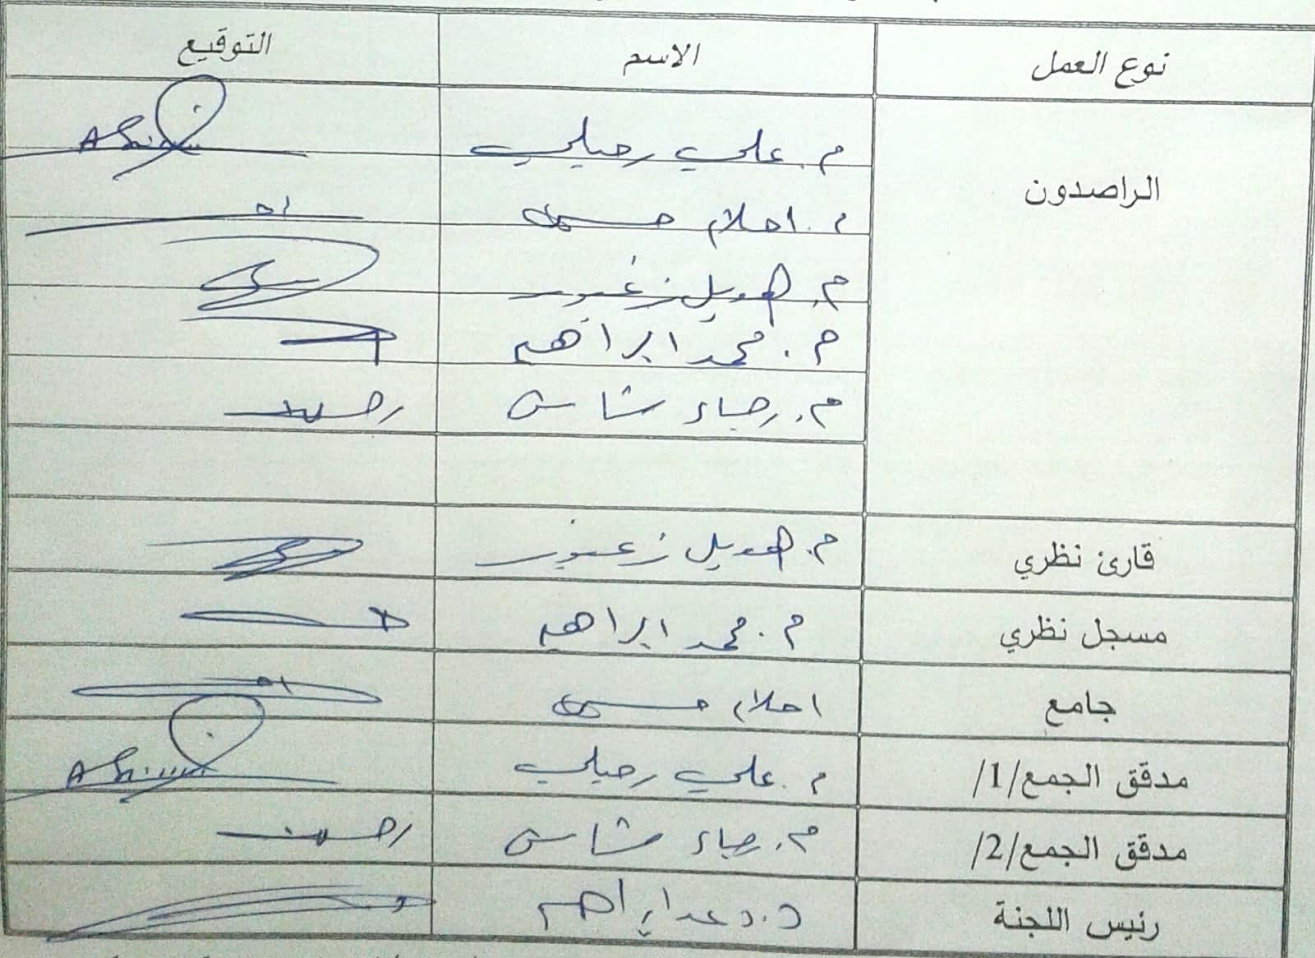 نوع العمل الاسم التوقيع
الراصدون
م. علي رحيلي
م. احلام حسن
م. هديل زغبور
م. محمد ابراهيم
م. رجاء شاش
قارئ نظري م. هديل زغبور
مسجل نظري م. محمد ابراهيم
جامع احلام حسن
مدقق الجمع/1/ م. علي رحيلي
مدقق الجمع/2/ م. رجاء شاش
رئيس اللجنة د. دعد ابراهيم